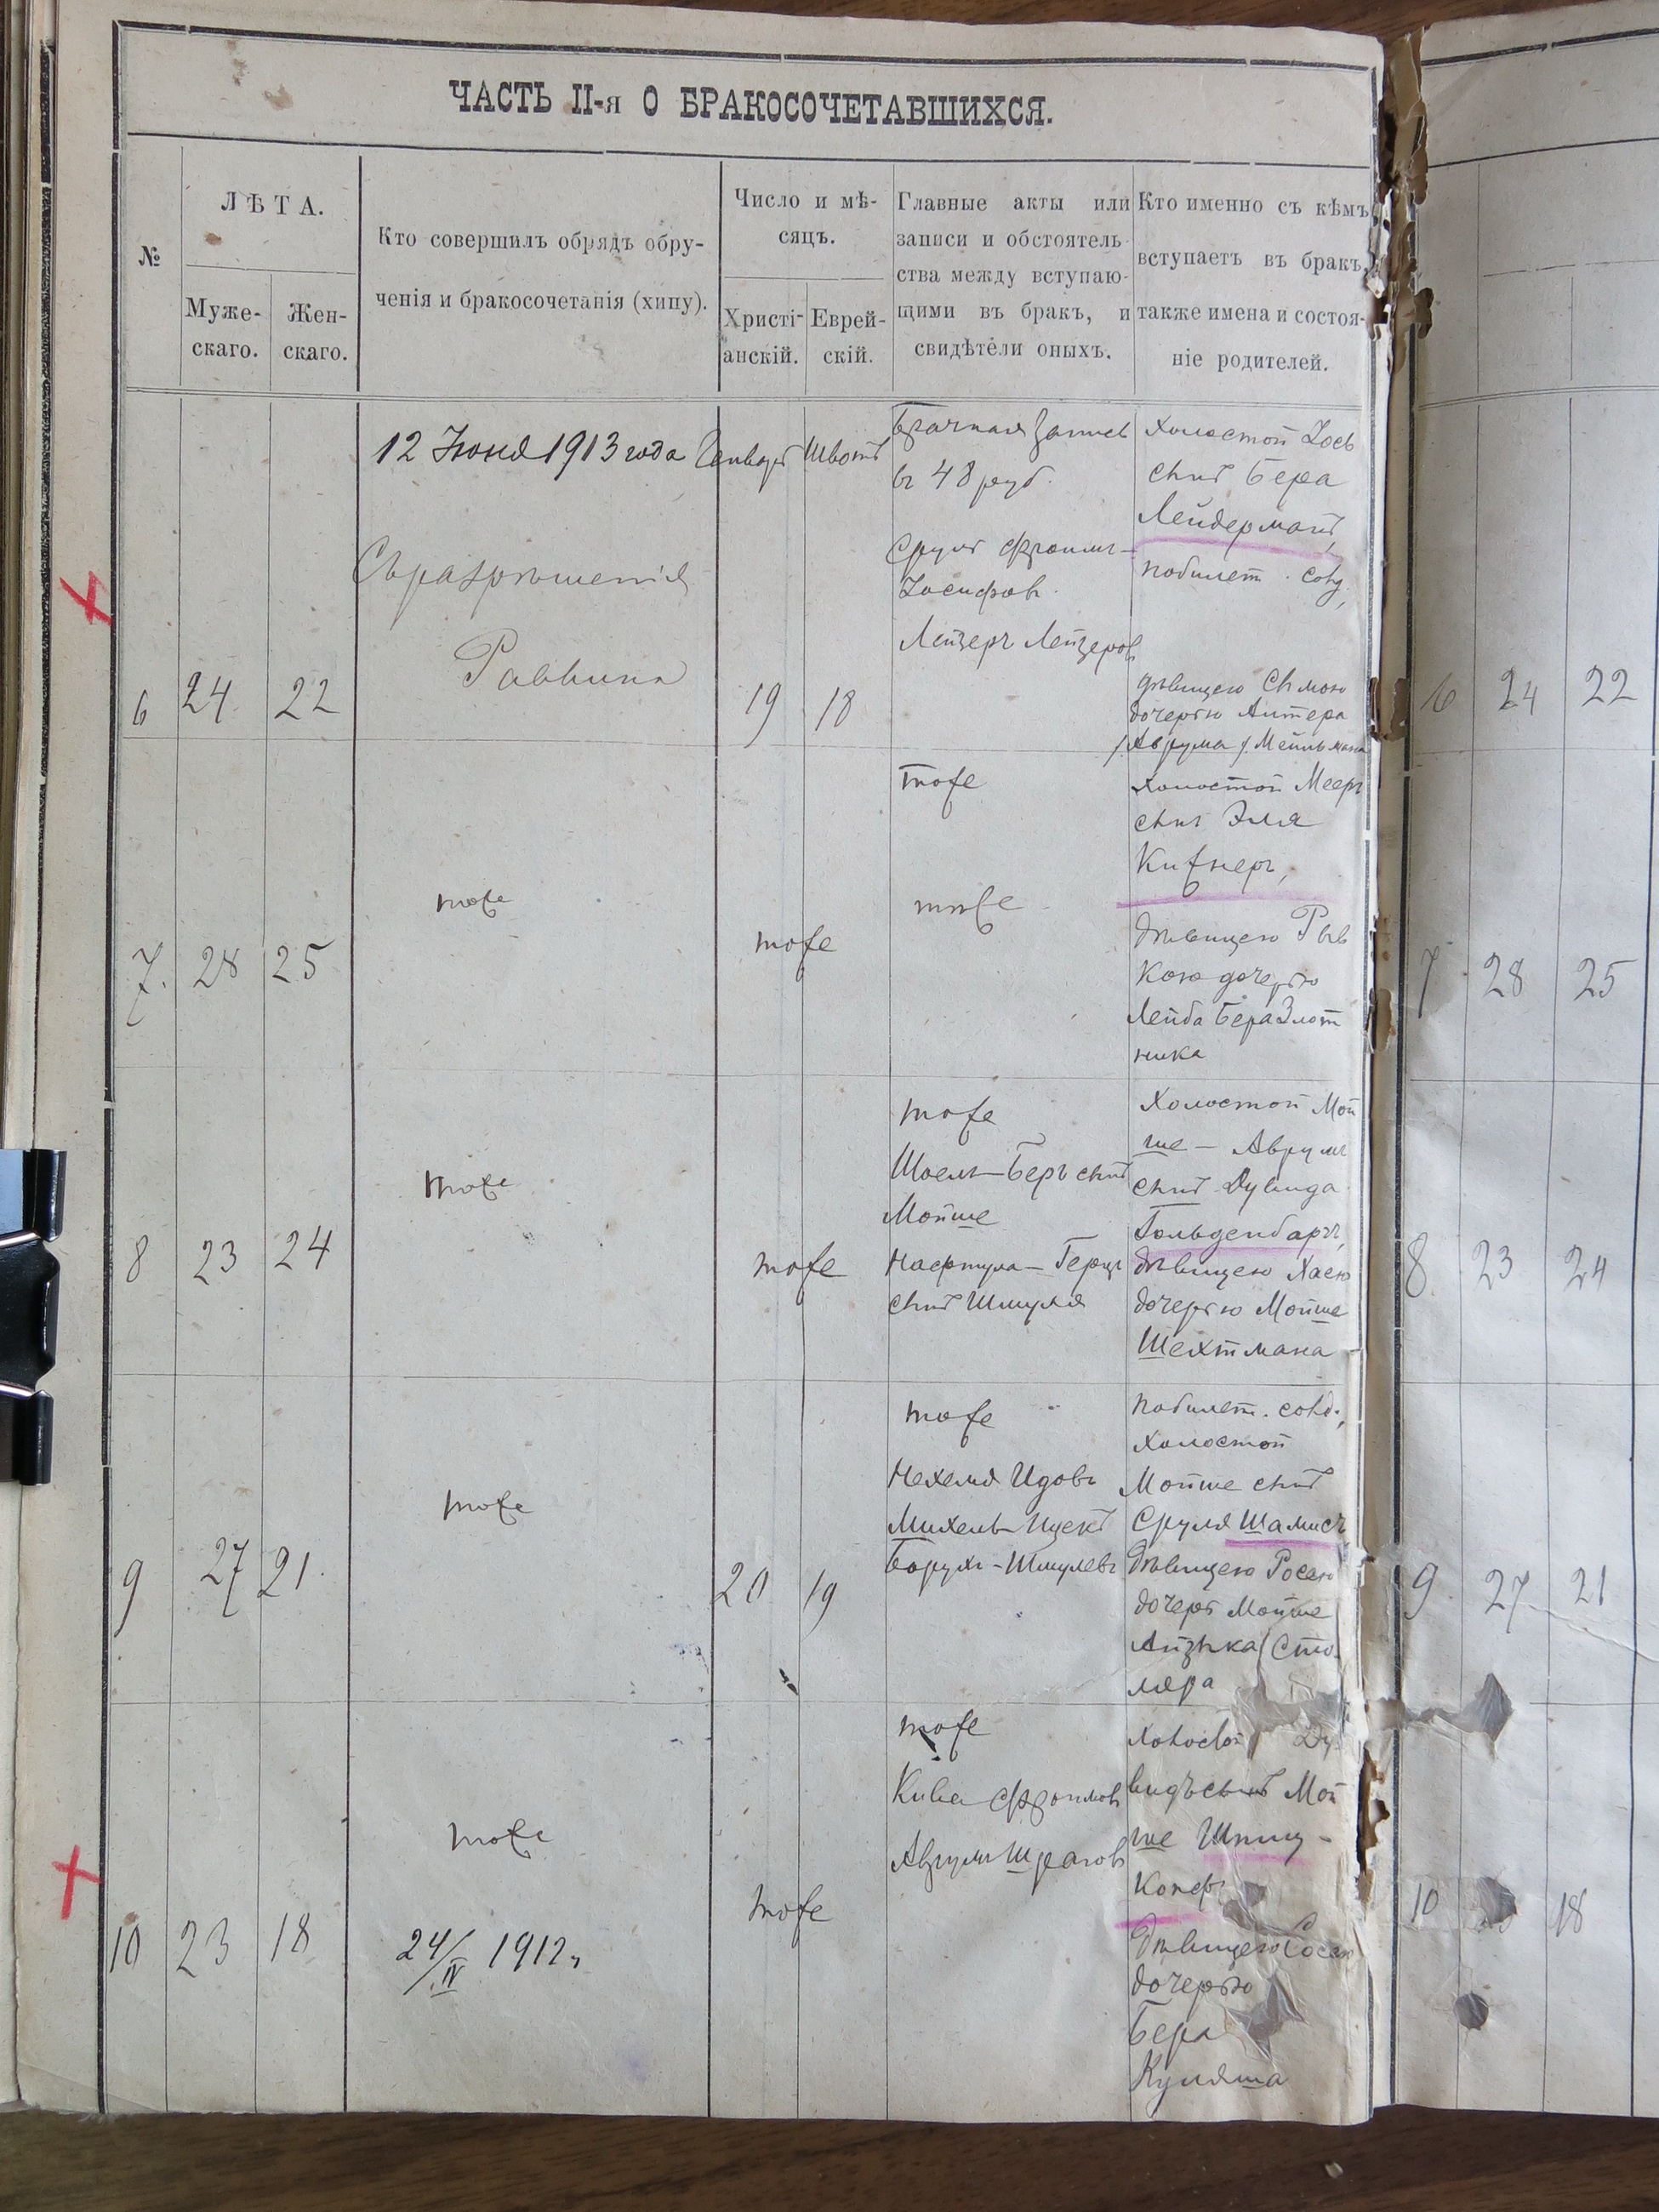 ЧАСТЬ II-я О БРАКОСОЧЕТАВШИХСЯ.
№
ЛѢТА.
Муже-
скаго.
Жен-
скаго.
Кто совершилъ обрядъ обру-
ченія и бракосочетанія (хипу).
Число и мѣ-
сяцъ.
Христі-
анскій.
Еврей-
скій.
Главные акты или
записи и обстоятель
ства между вступаю-
щими въ бракъ, и
свидѣтели оныхъ.
Кто именно съ кѣмъ
вступаетъ въ бракъ,
также имена и состоя-
ніе родителей.
6
24
22
12 Июня 1913 года
Съ разрѣшенія
Раввина
Январь
19
Швотъ
18
Брачная запись
въ 48 руб.
Сруль Фроимъ-
Іосифовъ
Лейзеръ Лейзеровъ
Холостой Іось
сынъ Бера
Лейдерманъ,
побилет. совд,
дѣвицею
дочерью Антера
/.Аврума/. Мейльмана
6 24 22
7.
28
25
тоже
тоже
тоже
тоже
холостой Мееръ
сынъ Эля
Кижнеръ,
дѣвицею Рыв
кою дочерью
Лейба Бера Злот
ника
7 28 25
8
23
24
тоже
тоже
тоже
Шоель-Беръ сынъ
Мойше
Нафтула-Герцъ
сынъ Шмуля
Холостой Мой
ше - Аврумъ
сынъ Дувида
Гольденбаргъ,
дѣвицею Хаею
дочерью Мойше
Шехтмана
8 23 24
9
27
21
тоже
20
19
тоже
Нехемя Идовъ
Михель Ицекъ
Борухъ-Шмулевъ
побилет. совд.,
холостой
Мойше сынъ
Сруля Шамисъ
дѣвицею Росею
дочерь Мойше
Айзыка Сто
ляра
9 27 21
10
23
18
тоже
24/IV 1912 г.
тоже
тоже
Кива Фроимовъ
Аврумъ Шраговъ
холостой Ду
видъ сынъ Мой
ше Шпиц-
Копфъ
дѣвицею Сосею
дочерью
Бера
Куляша
10 18